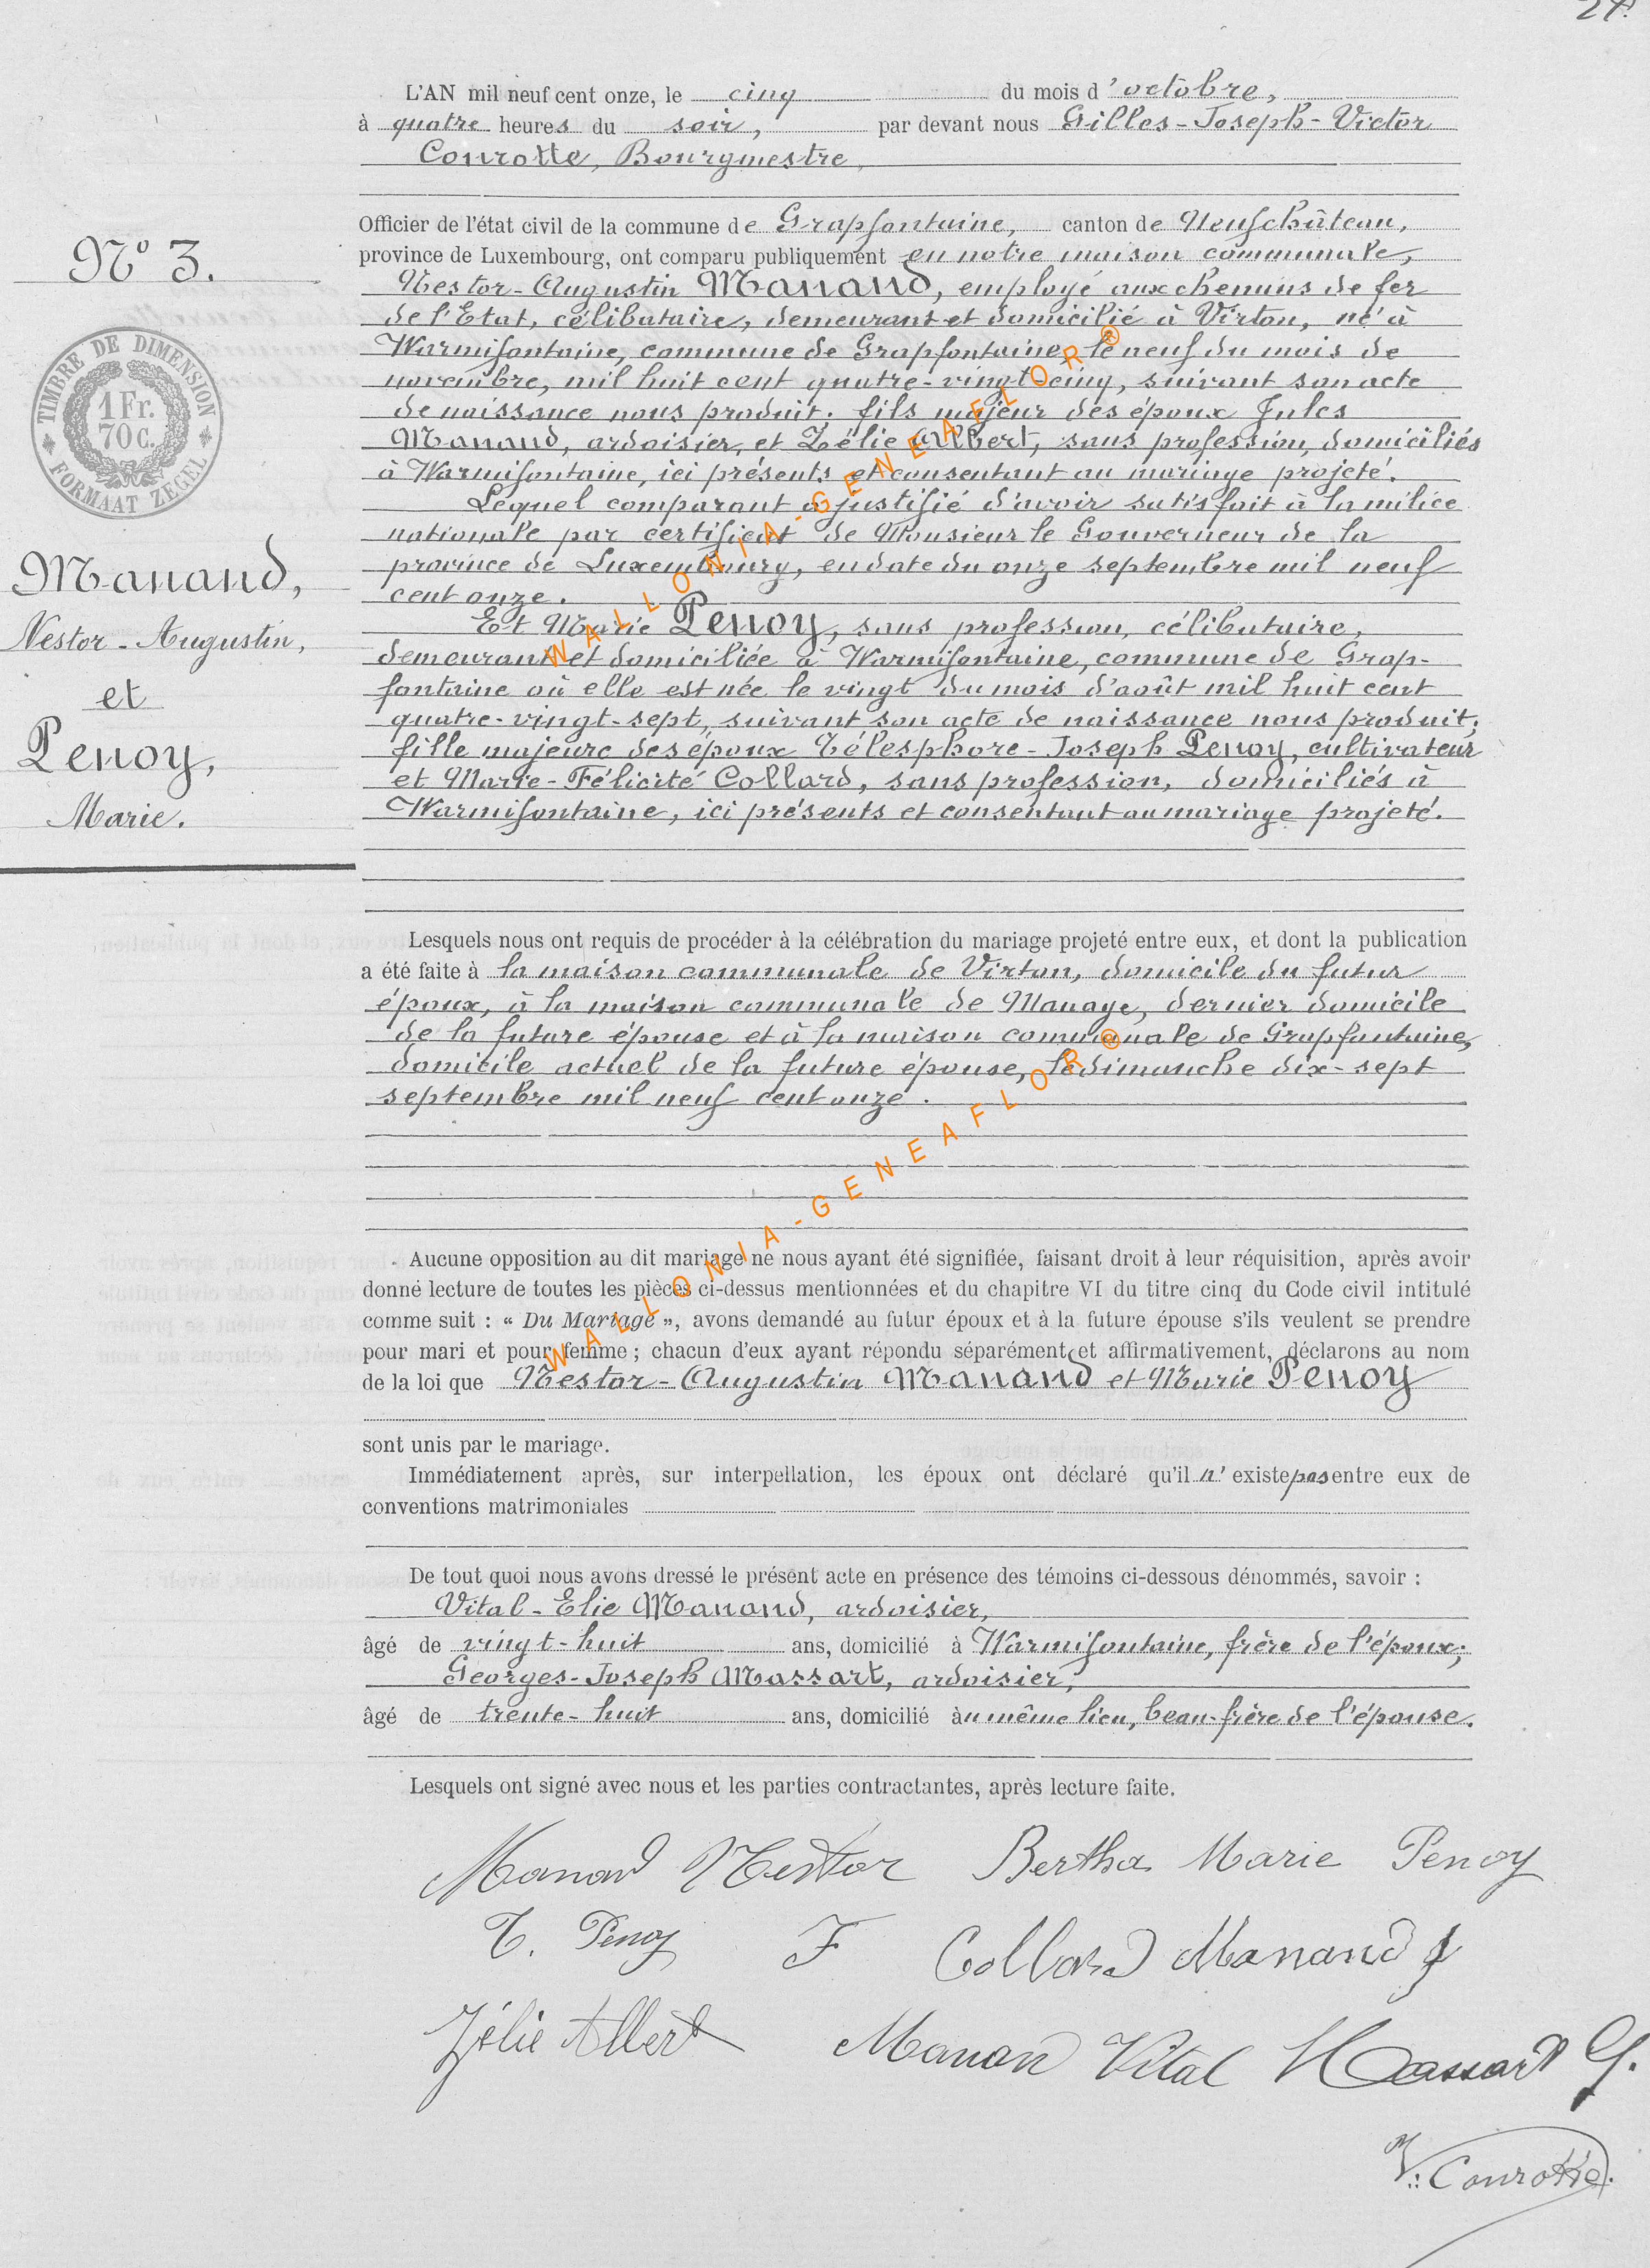 24.
L'AN mil neuf cent onze, le cinq du mois d'octobre,
à quatre heures du soir, par devant nous Gilles-Joseph-Victor
Conrotte, Bourgmestre,
Officier de l'état civil de la commune de Grapfontaine, canton de Neufchâteau,
province de Luxembourg, ont comparu publiquement en notre maison communale,
Nestor-Augustin Manand, employé aux chemins de fer
de l'Etat, célibataire, demeurant et domicilié à Virton, né à
Warmifontaine, commune de Grapfontaine, le neuf du mois de
novembre, mil huit cent quatre-vingt-cinq, suivant son acte
de naissance nous produit; fils majeur des époux Jules
Manand, ardoisier, et Zélie Albert, sans profession, domiciliés
à Warmifontaine, ici présents et consentant au mariage projeté.
Lequel comparant a justifié d'avoir satisfait à la milice
nationale par certificat de Monsieur le Gouverneur de la
province de Luxembourg, en date du onze septembre mil neuf
cent onze.
Et Marie Penoy, sans profession, célibataire,
demeurant et domiciliée à Warmifontaine, commune de Grap-
fontaine où elle est née le vingt du mois d'août mil huit cent
quatre-vingt-sept, suivant son acte de naissance nous produit;
fille majeure des époux Télesphore-Joseph Penoy, cultivateur
et Marie-Félicité Collard, sans profession, domiciliés à
Warmifontaine, ici présents et consentant au mariage projeté.
N° 3.
TIMBRE DE DIMENSION
1 Fr.
70 C.
FORMAAT ZEGEL
Manand,
Nestor-Augustin,
et
Penoy,
Marie.
WALLONIA-GENEAFLOR®
Lesquels nous ont requis de procéder à la célébration du mariage projeté entre eux, et dont la publication
a été faite à la maison communale de Virton, domicile du futur
époux, à la maison communale de Manage, dernier domicile
de la future épouse et à la maison communale de Grapfontaine,
domicile actuel de la future épouse, le dimanche dix-sept
septembre mil neuf cent onze.
WALLONIA-GENEAFLOR®
Aucune opposition au dit mariage ne nous ayant été signifiée, faisant droit à leur réquisition, après avoir
donné lecture de toutes les pièces ci-dessus mentionnées et du chapitre VI du titre cinq du Code civil intitulé
comme suit : « Du Mariage », avons demandé au futur époux et à la future épouse s'ils veulent se prendre
pour mari et pour femme ; chacun d'eux ayant répondu séparément et affirmativement, déclarons au nom
de la loi que Nestor-Augustin Manand et Marie Penoy
sont unis par le mariage.
Immédiatement après, sur interpellation, les époux ont déclaré qu'il n'existe pas entre eux de
conventions matrimoniales
De tout quoi nous avons dressé le présent acte en présence des témoins ci-dessous dénommés, savoir :
Vital-Elie Manand, ardoisier,
âgé de vingt-huit ans, domicilié à Warmifontaine, frère de l'époux;
Georges-Joseph Massart, ardoisier,
âgé de trente-huit ans, domicilié au même lieu, beau-frère de l'épouse.
Lesquels ont signé avec nous et les parties contractantes, après lecture faite.
Manand Nestor Bertha Marie Penoy
T. Penoy F Collard Manand J
Zélie Albert Manand Vital Massart G.
V. Conrotte.